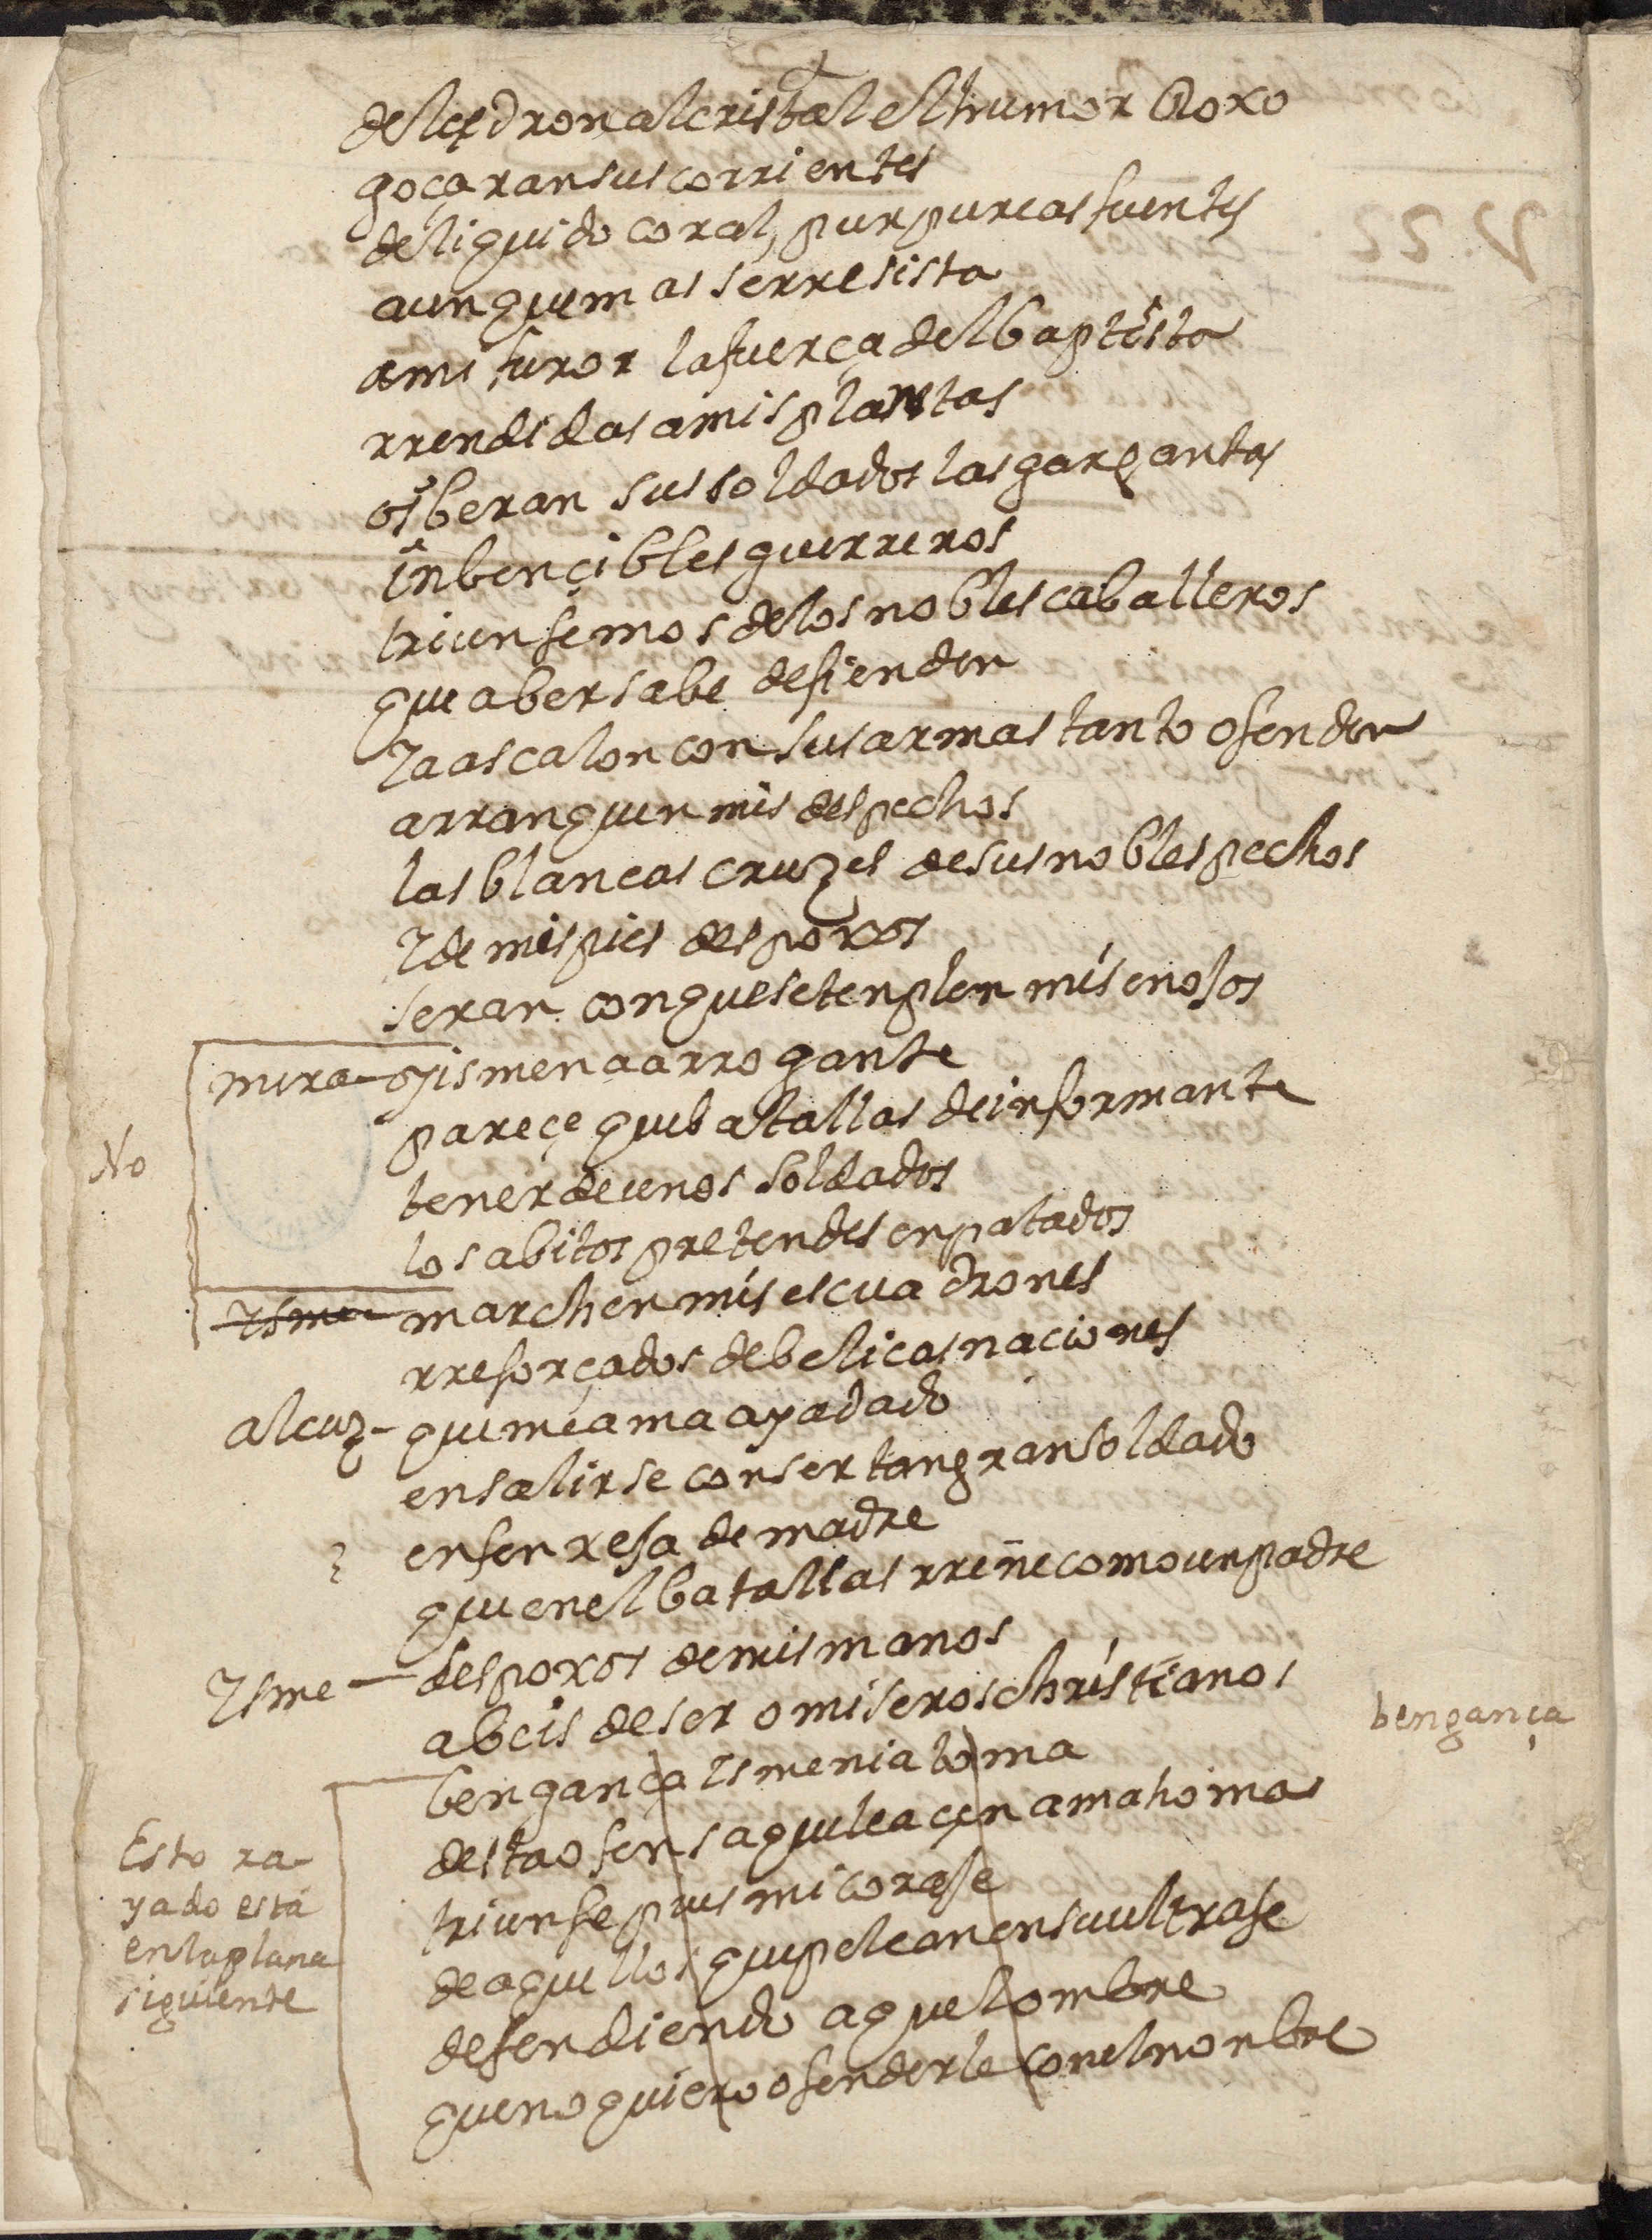 del çedron al cristal el humor Roxo
goçaran sus corrientes
de liquido coral, purpureas fuentes
aunque mas se rresista
a mi furor la fuerça del baptista
rrendidas a mis plantas
os beran sus soldados las gargantas
inbençibles guerreros
triunfemos de los nobles caballeros
que a bersabe defienden
Y a ascalon con sus armas tanto ofenden
arranquen mis despechos
las blancas cruzes de sus nobles pechos
Y de mis pies despoxos
seran con que se tenplen mis enojos
mira - o jismena arrogante
pareçe que batallas de informante
No
tener de unos soldados
los abitos pretendes enpatados
Isme - marchen mis escuadrones
rreforçados de belicas naciones
alcuz - que me a ma ayadado
en salirse con ser tan gran soldado
enfenresa de madre
que en el batallas rriñe como un padre
Isme - despoxos de mis manos
abeis de ser o miseros christianos
bengança
bengança Ismenia toma
desta ofensa que le açen a mahoma
Esto ra
yado está
en la plana
siguiente
triunfe pues mi coraje
de aquellos que pelean en su ultraje
defendiendo aquel ombre
que no quiero ofenderle con el nonbre